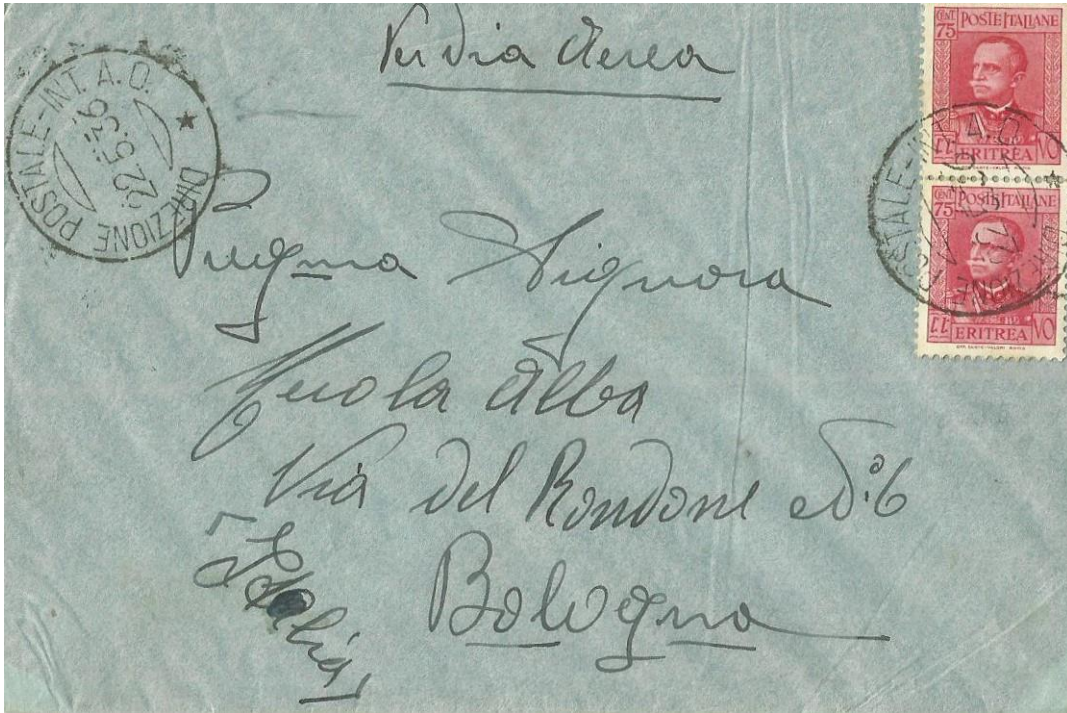 Per via Aerea
DIREZIONE POSTALE-INT. A.O.
22.5.36
CENT 75 POSTE ITALIANE
ERITREA
CENT 75 POSTE ITALIANE
ERITREA
Signora
Alba
Via del Rondone N° 6
Bologna
Italia